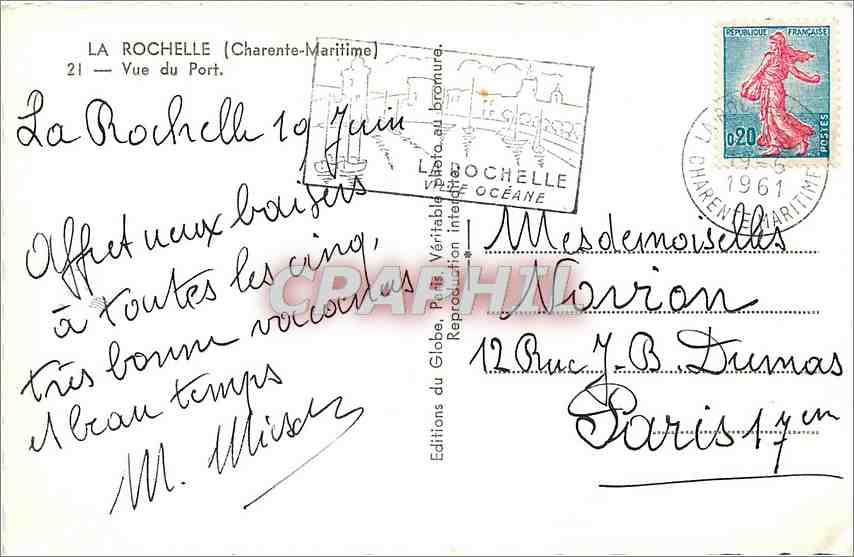 LA ROCHELLE (Charente-Maritime)
21 — Vue du Port.
La Rochelle 19 Juin
Affectueux baisers
à toutes les cinq,
très bonne vacances
et beau temps
M.
Editions du Globe, Paris. Véritable photo au bromure.
Reproduction interdite.
LA ROCHELLE
VILLE OCÉANE
RÉPUBLIQUE FRANÇAISE
0,20
POSTES
LA ROCHELLE
1961
CHARENTE MARITIME
CPAPHIL
Mesdemoiselles
Novion
12 Rue J-B. Dumas
Paris 17em